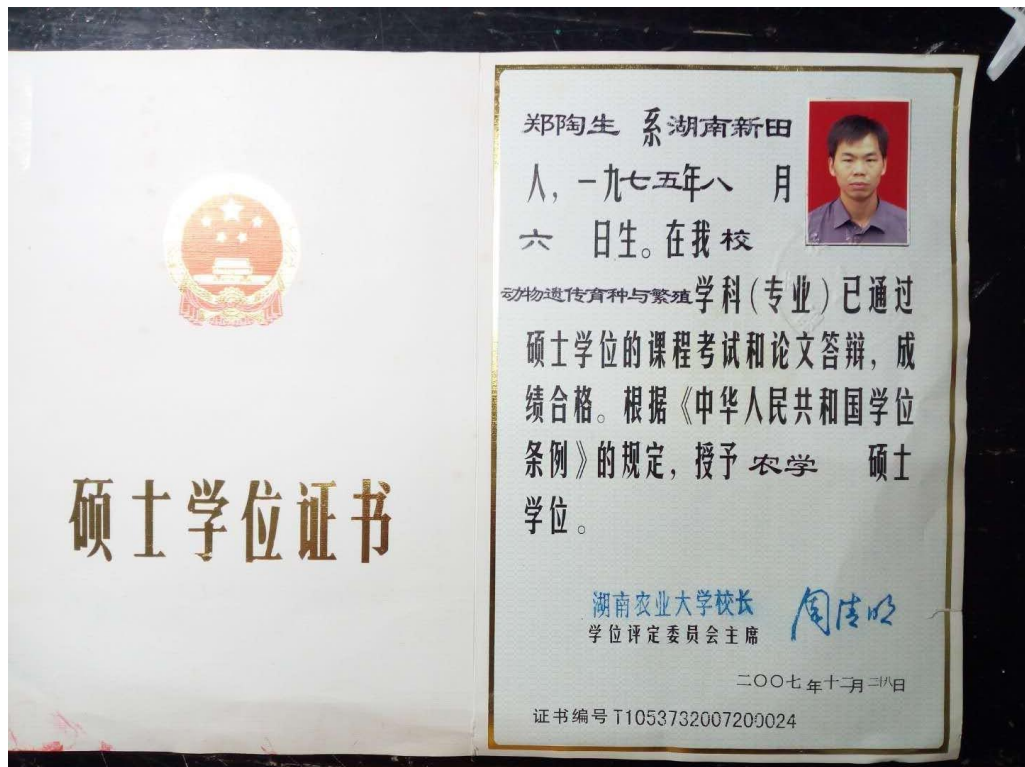 硕士学位证书
郑陶生 系湖南新田
人，一九七五年八 月
六 日生。在我校
动物遗传育种与繁殖学科(专业)已通过
硕士学位的课程考试和论文答辩，成
绩合格。根据《中华人民共和国学位
条例》的规定，授予 农学 硕士
学位。
湖南农业大学校长 周清明
学位评定委员会主席
二〇〇七年十二月二十八日
证书编号 T1053732007200024